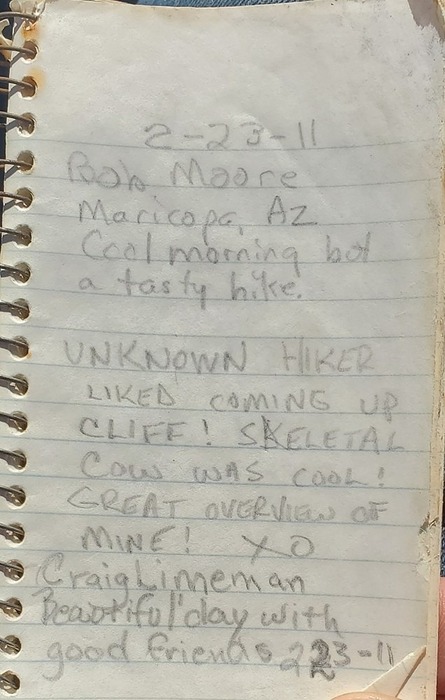 2-23-11
Bob Moore
Maricopa, Az
Cool morning but
a tasty hike.
UNKNOWN HIKER
LIKED COMING UP
CLIFF! SKELETAL
COW WAS COOL!
GREAT OVERVIEW OF
MINE! XO
Craig Linneman
Beautiful day with
good friends 2 23-11